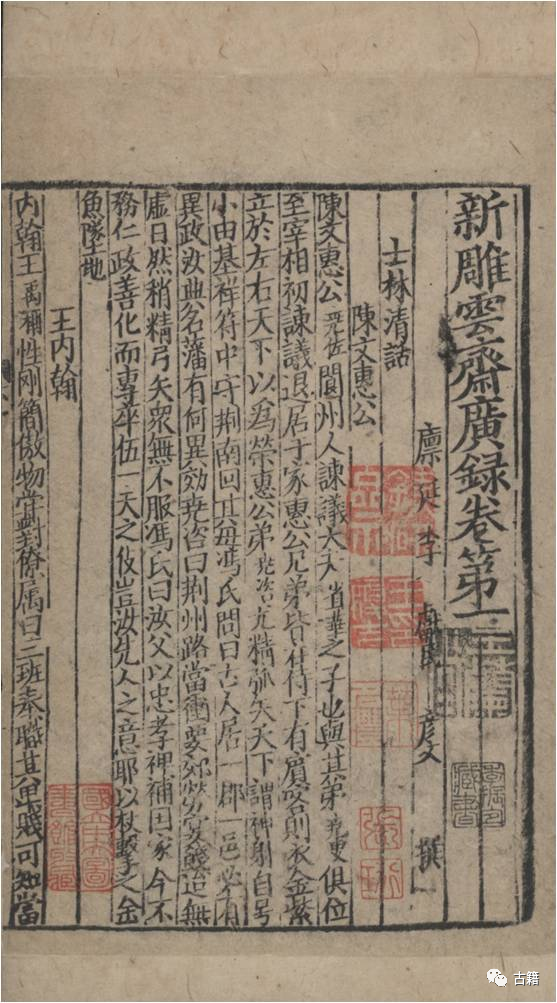 新雕雲齋廣録卷第一
廪延李 獻民 彦文 撰
士林清話
陳文惠公
陳文惠公堯佐閬州人諫議大夫省華之子也與其弟堯叟俱位
至宰相初諫議退居于家惠公兄弟皆侍下有賓客則衣金紫
立於左右天下以爲榮惠公弟堯咨尤精弧矢天下謂神射自号
小由基祥符中守荆南回其毋馮氏問曰古人居一郡一邑必有
異政汝典名藩有何異効堯咨曰荆州路當衝要郊勞宴餞迨無
虚日然稍精弓矢衆無不服馮氏曰汝父以忠孝裨補囯家今不
務仁政善化而專卒伍一夫之伎豈汝先人之意耶以杖擊之金
魚墜地
王内翰
内翰王禹偁性刚簡傲物嘗對僚属曰三班奉職其卑賤可知當
古籍